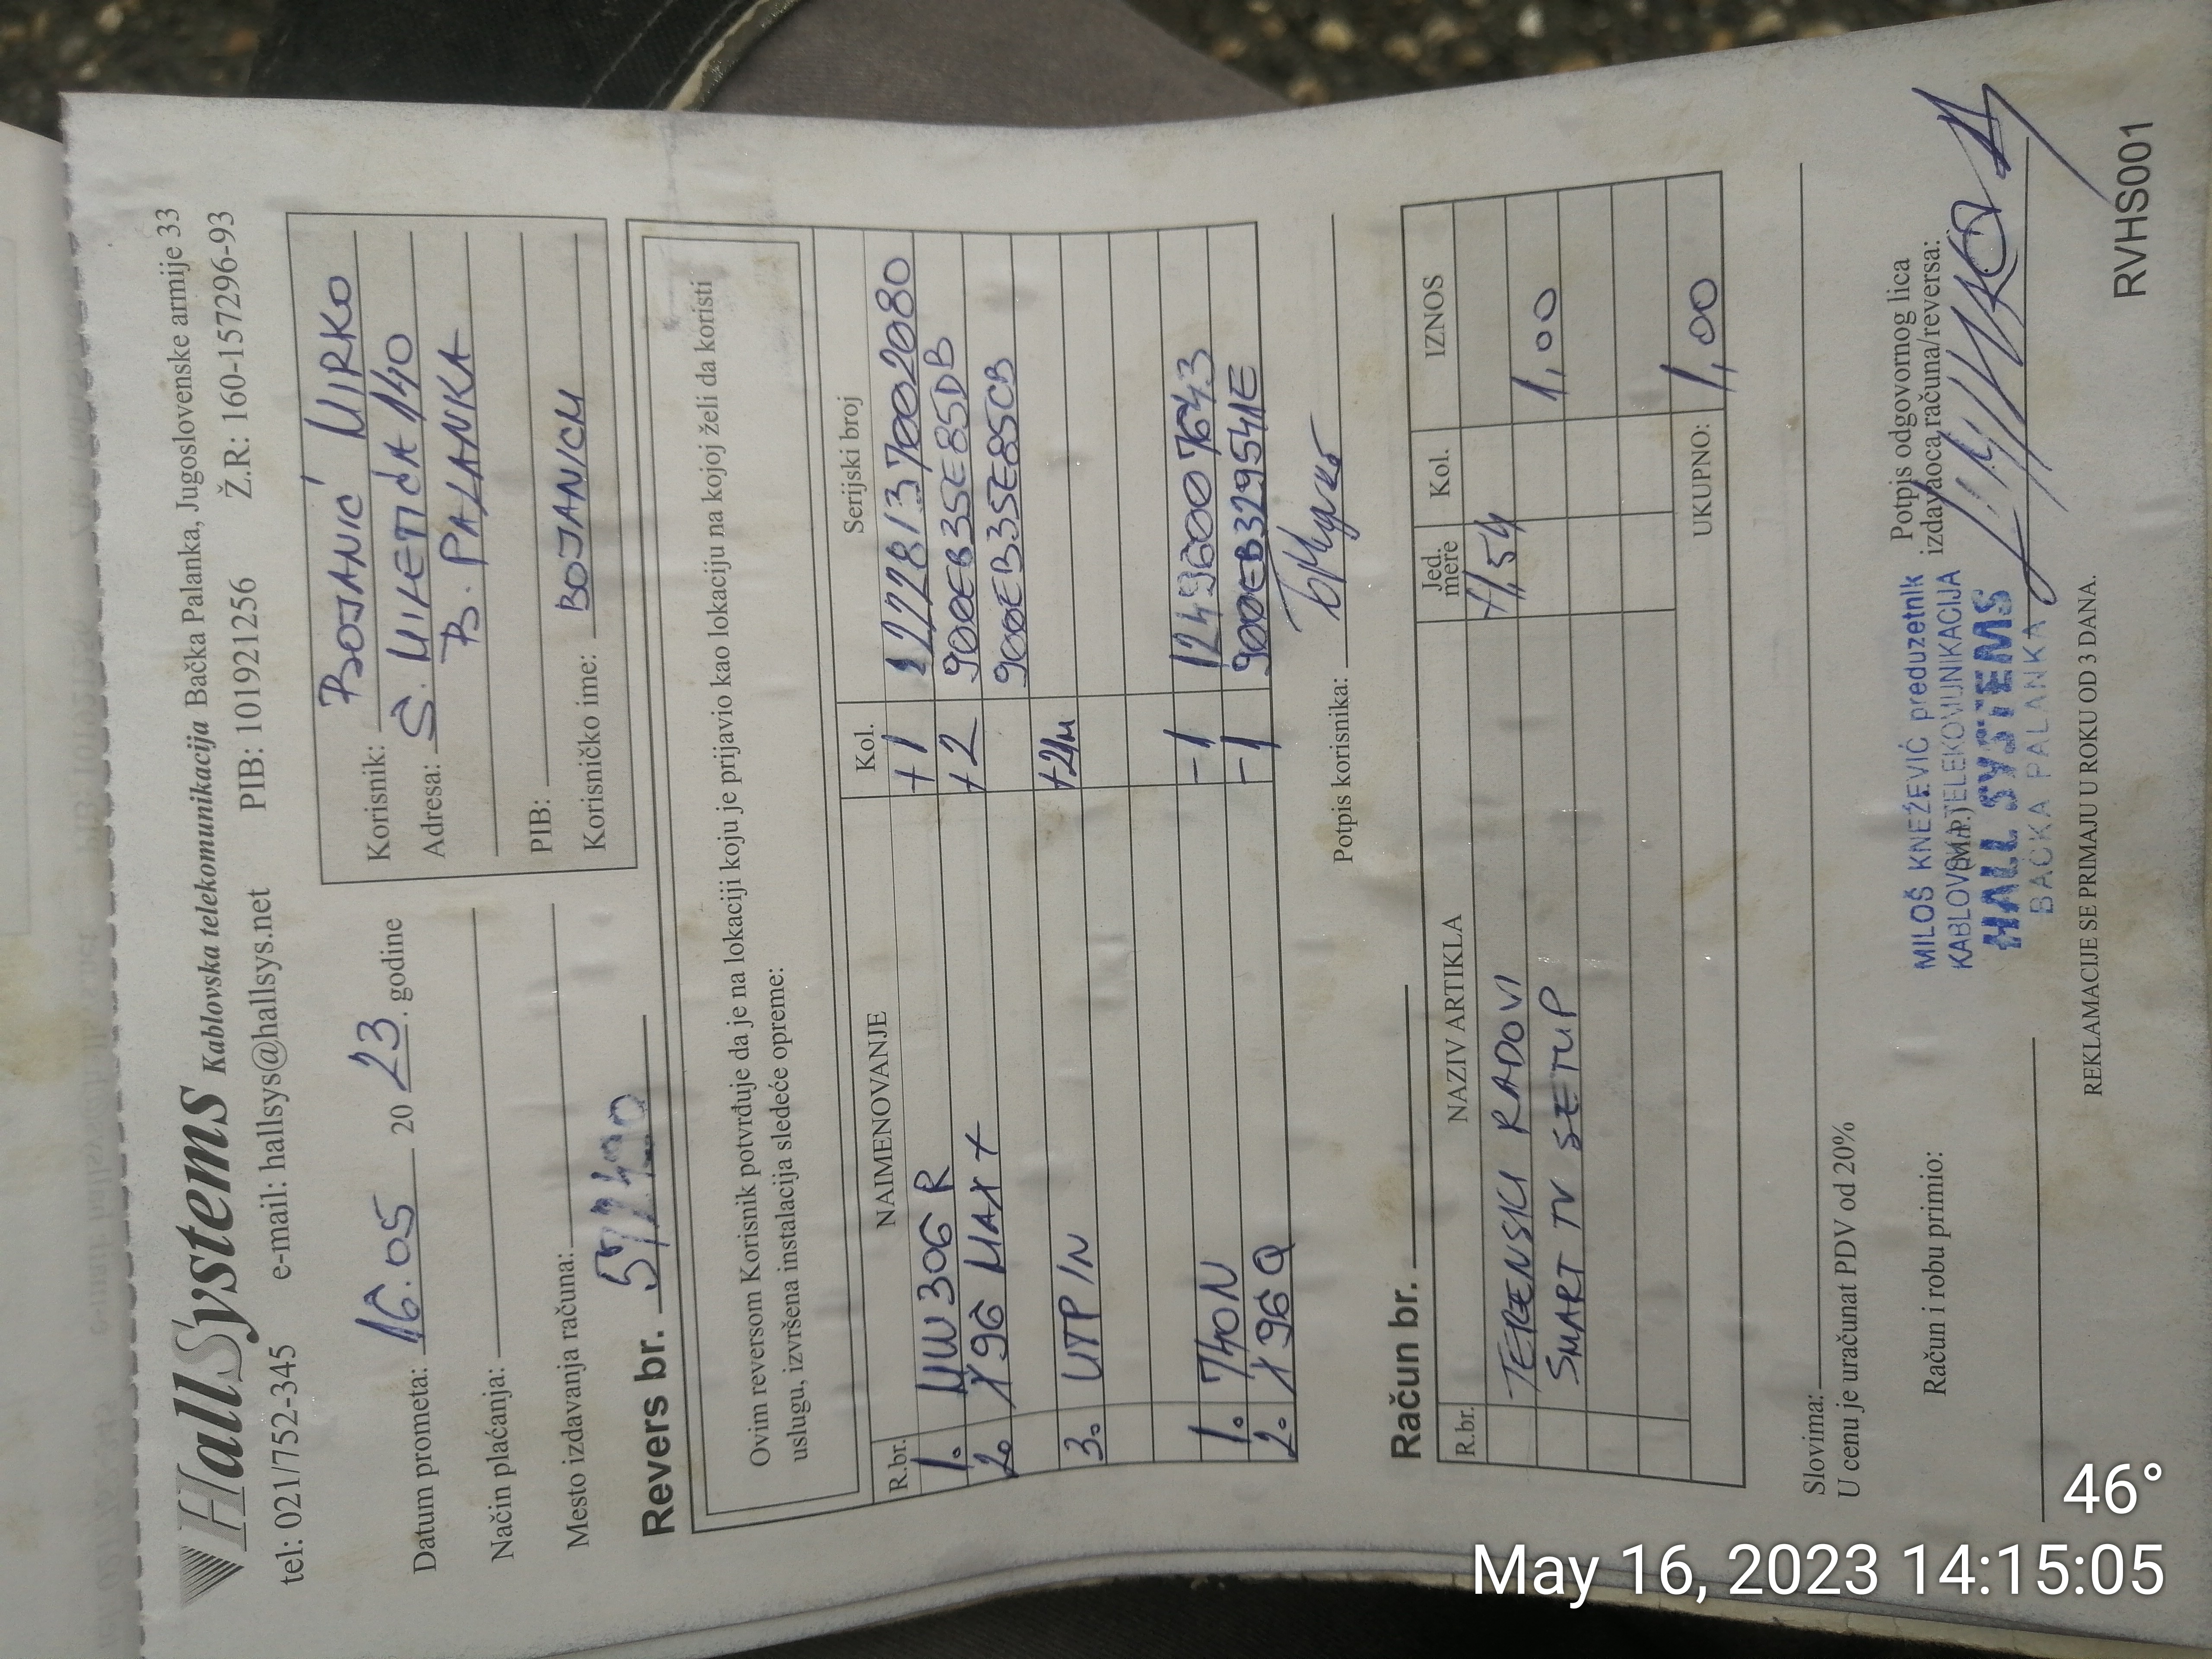 HallSystems Kablovska telekomunikacija Bačka Palanka, Jugoslovenske armije 33
tel: 021/752-345 e-mail: hallsys@hallsys.net PIB: 101921256 Ž.R.: 160-157296-93
Datum prometa: 16.05 20 23. godine
Način plaćanja:
Mesto izdavanja računa:
Korisnik: BOJANIĆ MIRKO
Adresa: S. MILETIĆA 140
B. PALANKA
PIB:
Korisničko ime: BOJANICM
Revers br. 57240
Ovim reversom Korisnik potvrđuje da je na lokaciji koju je prijavio kao lokaciju na kojoj želi da koristi
uslugu, izvršena instalacija sledeće opreme:
R.br. NAIMENOVANJE Kol. Serijski broj
1. MW306R +1 2228137002080
2. X96 MAX+ +2 900EB35E85DB
900EB35E85CB
3. UTP IN +2M
1. 740N -1 12496007643
2. X96Q -1 900EB329541E
Potpis korisnika:
Račun br.
R.br. NAZIV ARTIKLA Jed. mere Kol. IZNOS
TERENSKI RADOVI +1,5H
SMART TV SETUP 1,00
UKUPNO: 1,00
Slovima:
U cenu je uračunat PDV od 20%
Račun i robu primio:
(M.P.)
MILOŠ KNEŽEVIĆ preduzetnik
KABLOVSKA TELEKOMUNIKACIJA
HALL SYSTEMS
BAČKA PALANKA
Potpis odgovornog lica
izdavaoca računa/reversa:
REKLAMACIJE SE PRIMAJU U ROKU OD 3 DANA.
RVHS001
46°
May 16, 2023 14:15:05